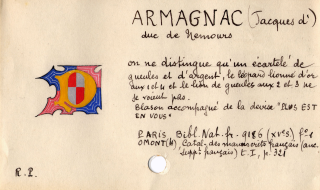 ARMAGNAC (Jacques d')
duc de Nemours
on ne distingue qu'un écartelé de
gueules et d'argent, le léopard lionné d'or
aux 1 et 4 et le lion de gueules aux 2 et 3 ne
se voient pas.
Blason accompagné de la devise "PLUS EST
EN VOUS"
PARIS, Bibl. Nat. fr. 9186 (XVe s.) fº 1
OMONT (H), Catal. des manuscrits français (anc.
suppt français) t. I, p. 321
R.P.